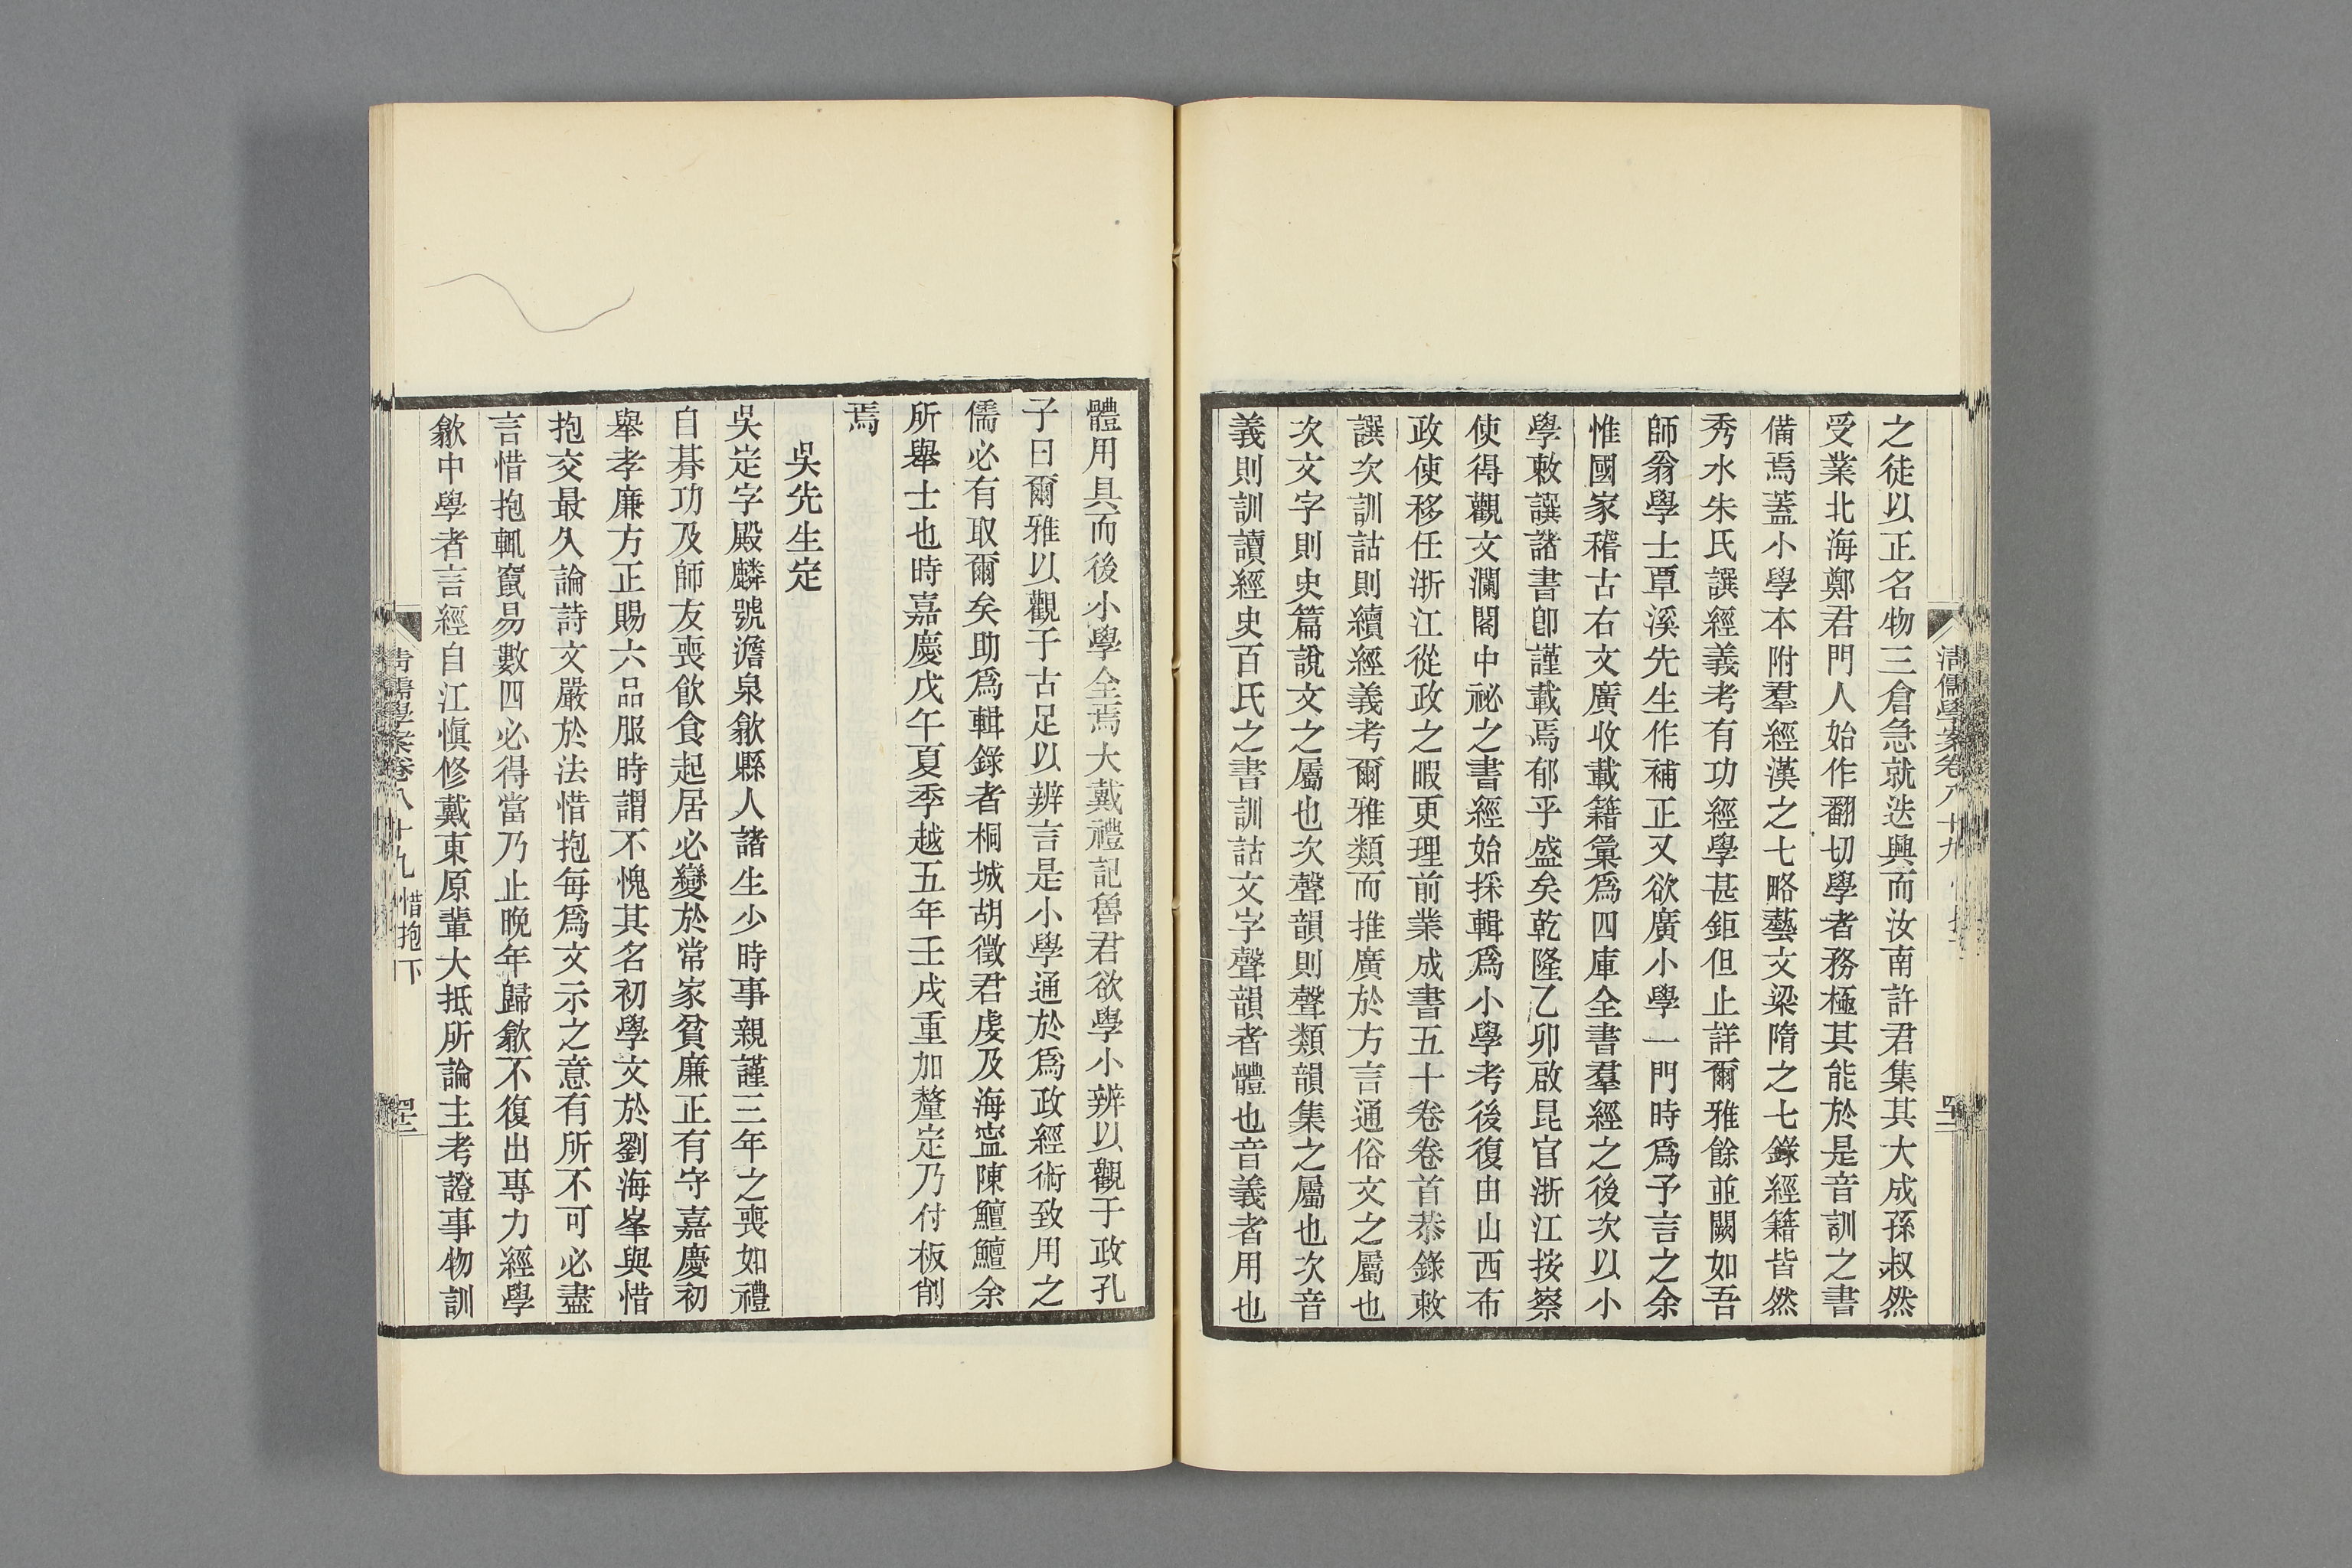 之徒以正名物三倉急就迭興而汝南許君集其大成孫叔然
受業北海鄭君門人始作翻切學者務極其能於是音訓之書
備焉蓋小學本附羣經漢之七略藝文梁隋之七錄經籍皆然
秀水朱氏譔經義考有功經學甚鉅但止詳爾雅餘並闕如吾
師翁學士覃溪先生作補正又欲廣小學一門時爲予言之余
惟國家稽古右文廣收載籍彙爲四庫全書羣經之後次以小
學敕譔諸書卽謹載焉郁乎盛矣乾隆乙卯啟昆官浙江按察
使得觀文瀾閣中祕之書經始採輯爲小學考後復由山西布
政使移任浙江從政之暇更理前業成書五十卷卷首恭錄敕
譔次訓詁則續經義考爾雅類而推廣於方言通俗文之屬也
次文字則史篇說文之屬也次聲韻則聲類韻集之屬也次音
義則訓讀經史百氏之書訓詁文字聲韻者體也音義者用也
體用具而後小學全焉大戴禮記魯君欲學小辨以觀于政孔
子曰爾雅以觀于古足以辨言是小學通於爲政經術致用之
儒必有取爾矣助爲輯錄者桐城胡徵君虔及海寧陳鱣鱣余
所舉士也時嘉慶戊午夏季越五年壬戌重加釐定乃付板削
焉
吳先生定
吳定字殿麟號澹泉歙縣人諸生少時事親謹三年之喪如禮
自朞功及師友喪飲食起居必變於常家貧廉正有守嘉慶初
舉孝廉方正賜六品服時謂不愧其名初學文於劉海峯與惜
抱交最久論詩文嚴於法惜抱每爲文示之意有所不可必盡
言惜抱輒竄易數四必得當乃止晚年歸歙不復出專力經學
歙中學者言經自江愼修戴東原輩大抵所論主考證事物訓
清儒學案卷八十九 惜抱下